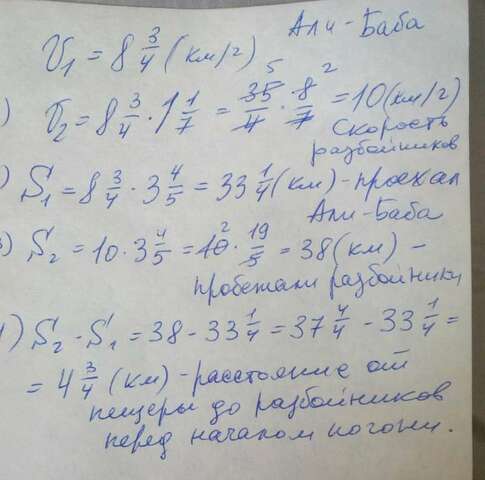 Али-Баба
V₁ = 8 3/4 (км/г)
) V₂ = 8 3/4 · 1 1/7 = 35/4 · 8/7 = 10 (км/г)
5 2
Скорость
разбойников
) S₁ = 8 3/4 · 3 4/5 = 33 1/4 (км) - проехал
Али-Баба
3) S₂ = 10 · 3 4/5 = 10 · 19/5 = 38 (км) -
2
пробежали разбойники
) S₂ - S₁ = 38 - 33 1/4 = 37 4/4 - 33 1/4 =
= 4 3/4 (км) - расстояние от
пещеры до разбойников
перед началом погони.